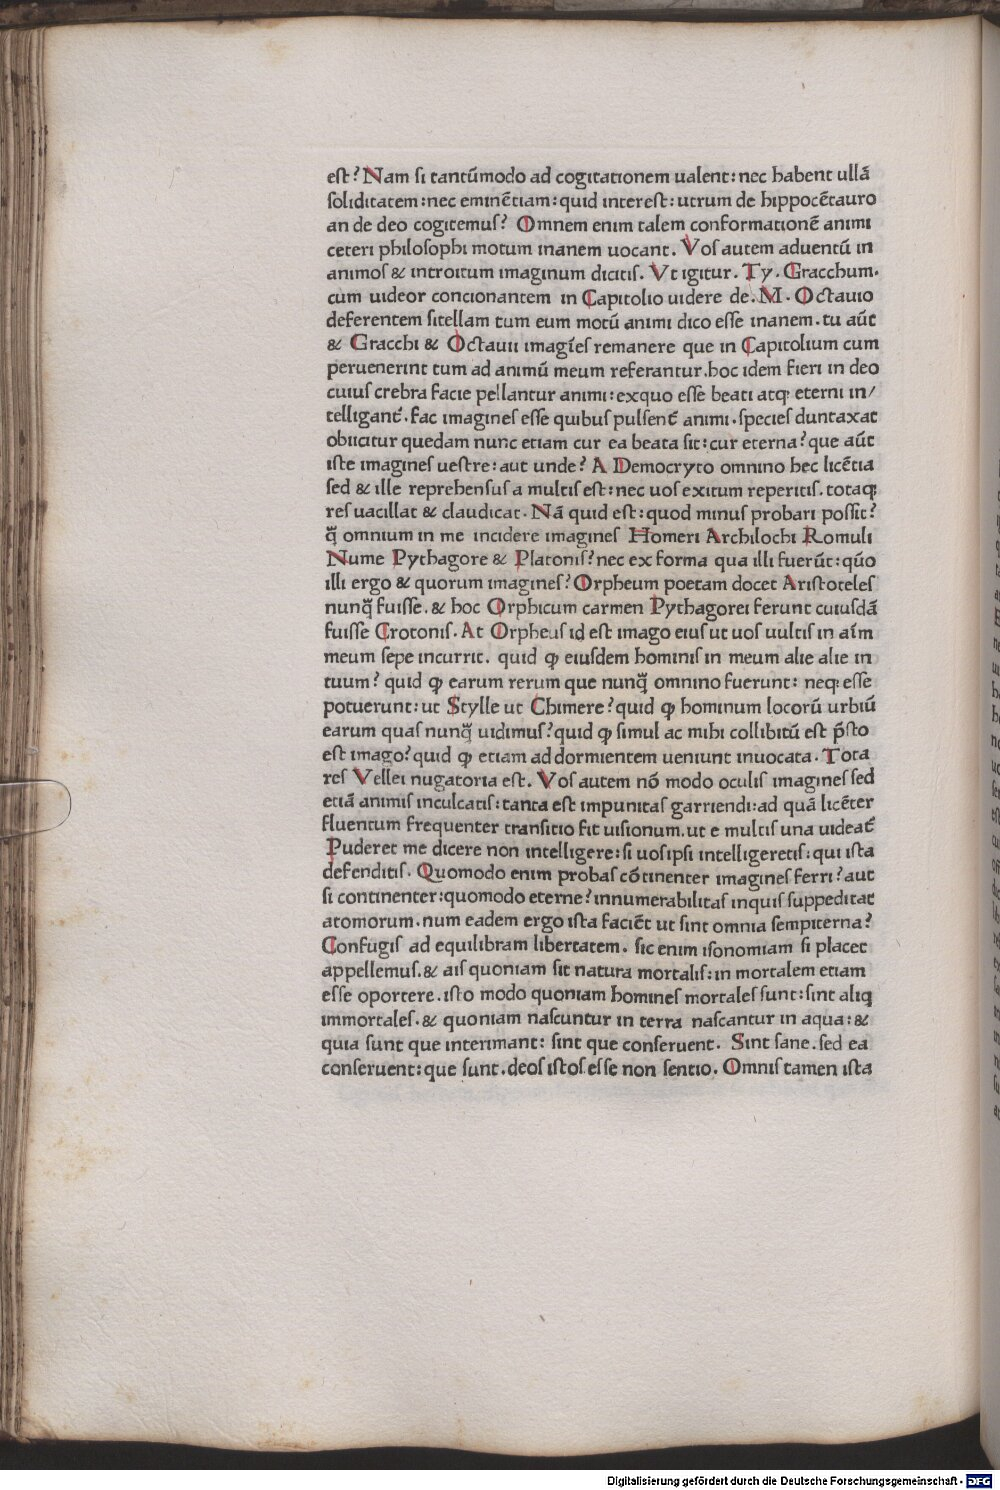 est? Nam si tantũmodo ad cogitationem ualent: nec habent ullã
soliditatem: nec eminẽtiam: quid interest: utrum de hippocẽtauro
an de deo cogitemus? Omnem enim talem conformationẽ animi
ceteri philosophi motum inanem uocant. Vos autem aduentũ in
animos & introitum imaginum dicitis. Vt igitur. Ty. Gracchum.
cum uideor concionantem in Capitolio uidere de. M. Octauio
deferentem sitellam tum eum motũ animi dico esse inanem. tu aũt
& Gracchi & Octauii imagīes remanere que in Capitolium cum
peruenerint tum ad animũ meum referantur. hoc idem fieri in deo
cuius crebra facie pellantur animi: exquo esse beati atqꝫ eterni in/
telligant᷑. fac imagines esse quibus pulsent᷑ animi. species duntaxat
obiicitur quedam nunc etiam cur ea beata sit: cur eterna? que aũt
iste imagines uestre: aut unde? A Democryto omnino hec licẽtia
sed & ille reprehensus a multis est: nec uos exitum reperitis. totaqꝫ
res uacillat & claudicat. Nã quid est: quod minus probari possit?
q̃ omnium in me incidere imagines Homeri Archilochi Romuli
Nume Pythagore & Platonis? nec ex forma qua illi fuerũt: quõ
illi ergo & quorum imagines? Orpheum poetam docet Aristoteles
nunq̃ fuisse. & hoc Orphicum carmen Pythagorei ferunt cuiusdã
fuisse Crotonis. At Orpheus id est imago eius ut uos uultis in aīm
meum sepe incurrit. quid ꝙ eiusdem hominis in meum alie alie in
tuum? quid ꝙ earum rerum que nunq̃ omnino fuerunt: neqꝫ esse
potuerunt: ut Scylle ut Chimere? quid ꝙ hominum locorũ urbiũ
earum quas nunq̃ uidimus? quid ꝙ simul ac mihi collibitũ est p̃sto
est imago? quid ꝙ etiam ad dormientem ueniunt inuocata. Tota
res Vellei nugatoria est. Vos autem nõ modo oculis imagines sed
etiã animis inculcatis: tanta est impunitas garriendi: ad quã licẽter
fluentum frequenter transitio fit uisionum. ut e multis una uideat᷑
Puderet me dicere non intelligere: si uos ipsi intelligeretis: qui ista
defenditis. Quomodo enim probas cõtinenter imagines ferri? aut
si continenter: quomodo eterne? innumerabilitas inquis suppeditat
atomorum. num eadem ergo ista faciẽt ut sint omnia sempiterna?
Confugis ad equilibram libertatem. sic enim isonomiam si placet
appellemus. & ais quoniam sit natura mortalis: in mortalem etiam
esse oportere. isto modo quoniam homines mortales sunt: sint aliqꝫ
immortales. & quoniam nascuntur in terra nascantur in aqua: &
quia sunt que interimant: sint que conseruent. Sint sane. sed ea
conseruent: que sunt. deos istos esse non sentio. Omnis tamen ista
Digitalisierung gefördert durch die Deutsche Forschungsgemeinschaft - DFG